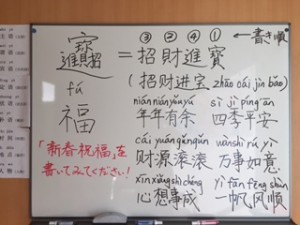 ③ ② ④ ① ←書き順
= 招財進寶
(招财进宝 zhāo cái jìn bǎo)
fú
福
niánniányǒuyú sì jì píng ān
年年有余 四季平安
cái yuángǔngǔn wànshì rú yì
财源滚滚 万事如意
xīn xiǎng shì chéng yī fān fēng shùn
心想事成 一帆风顺
「新春祝福」を
書いてみてください!